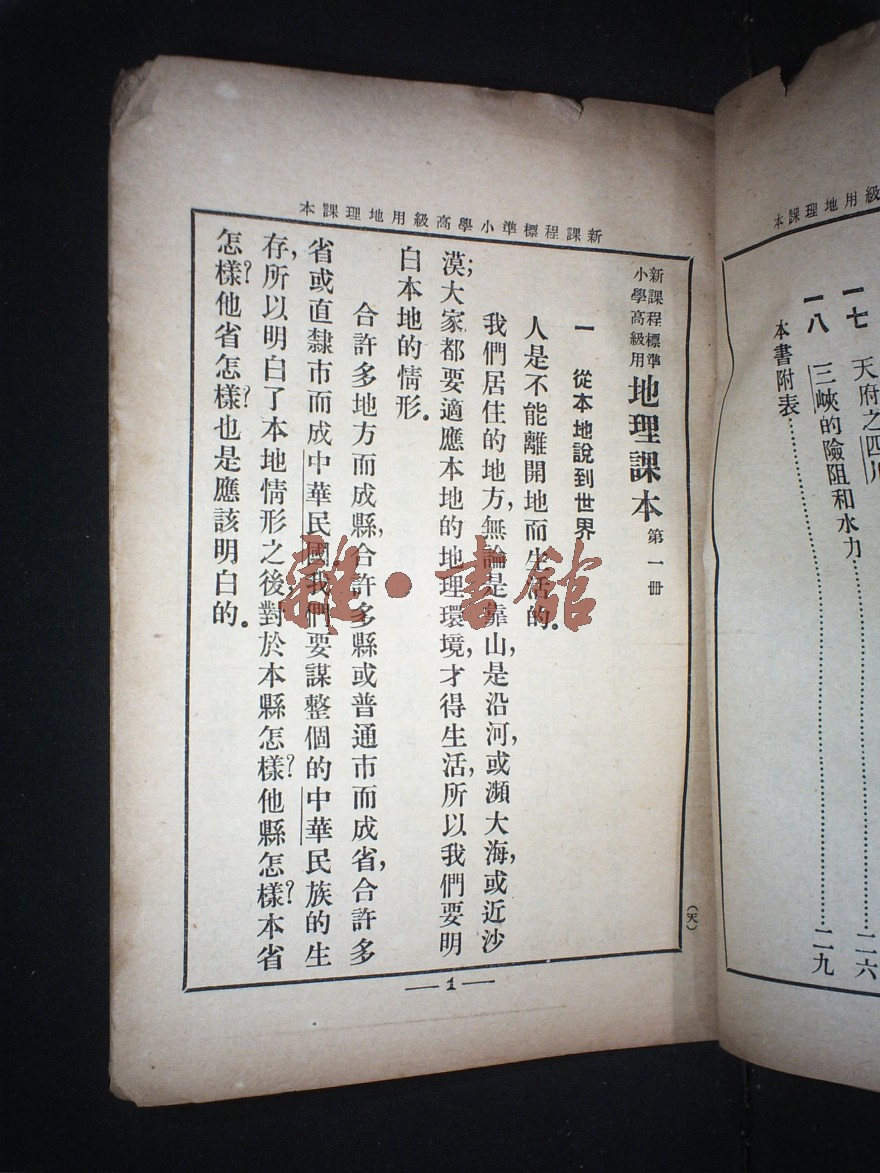 級用地理課本
一七　天府之四川
二六
一八　三峽的險阻和水力
二九
本書附表
新課程標準小學高級用地理課本
新課程標準
小學高級用
地理課本　第一冊
一　從本地說到世界
人是不能離開地而生活的。
我們居住的地方，無論是靠山，是沿河，或瀕大海，或近沙
漠；大家都要適應本地的地理環境，才得生活，所以我們要明
白本地的情形。
合許多地方而成縣，合許多縣或普通市而成省，合許多
省或直隸市而成中華民國我們要謀整個的中華民族的生
存，所以明白了本地情形之後，對於本縣怎樣？他縣怎樣？本省
怎樣？他省怎樣？也是應該明白的。
（天）
1
雜·書館